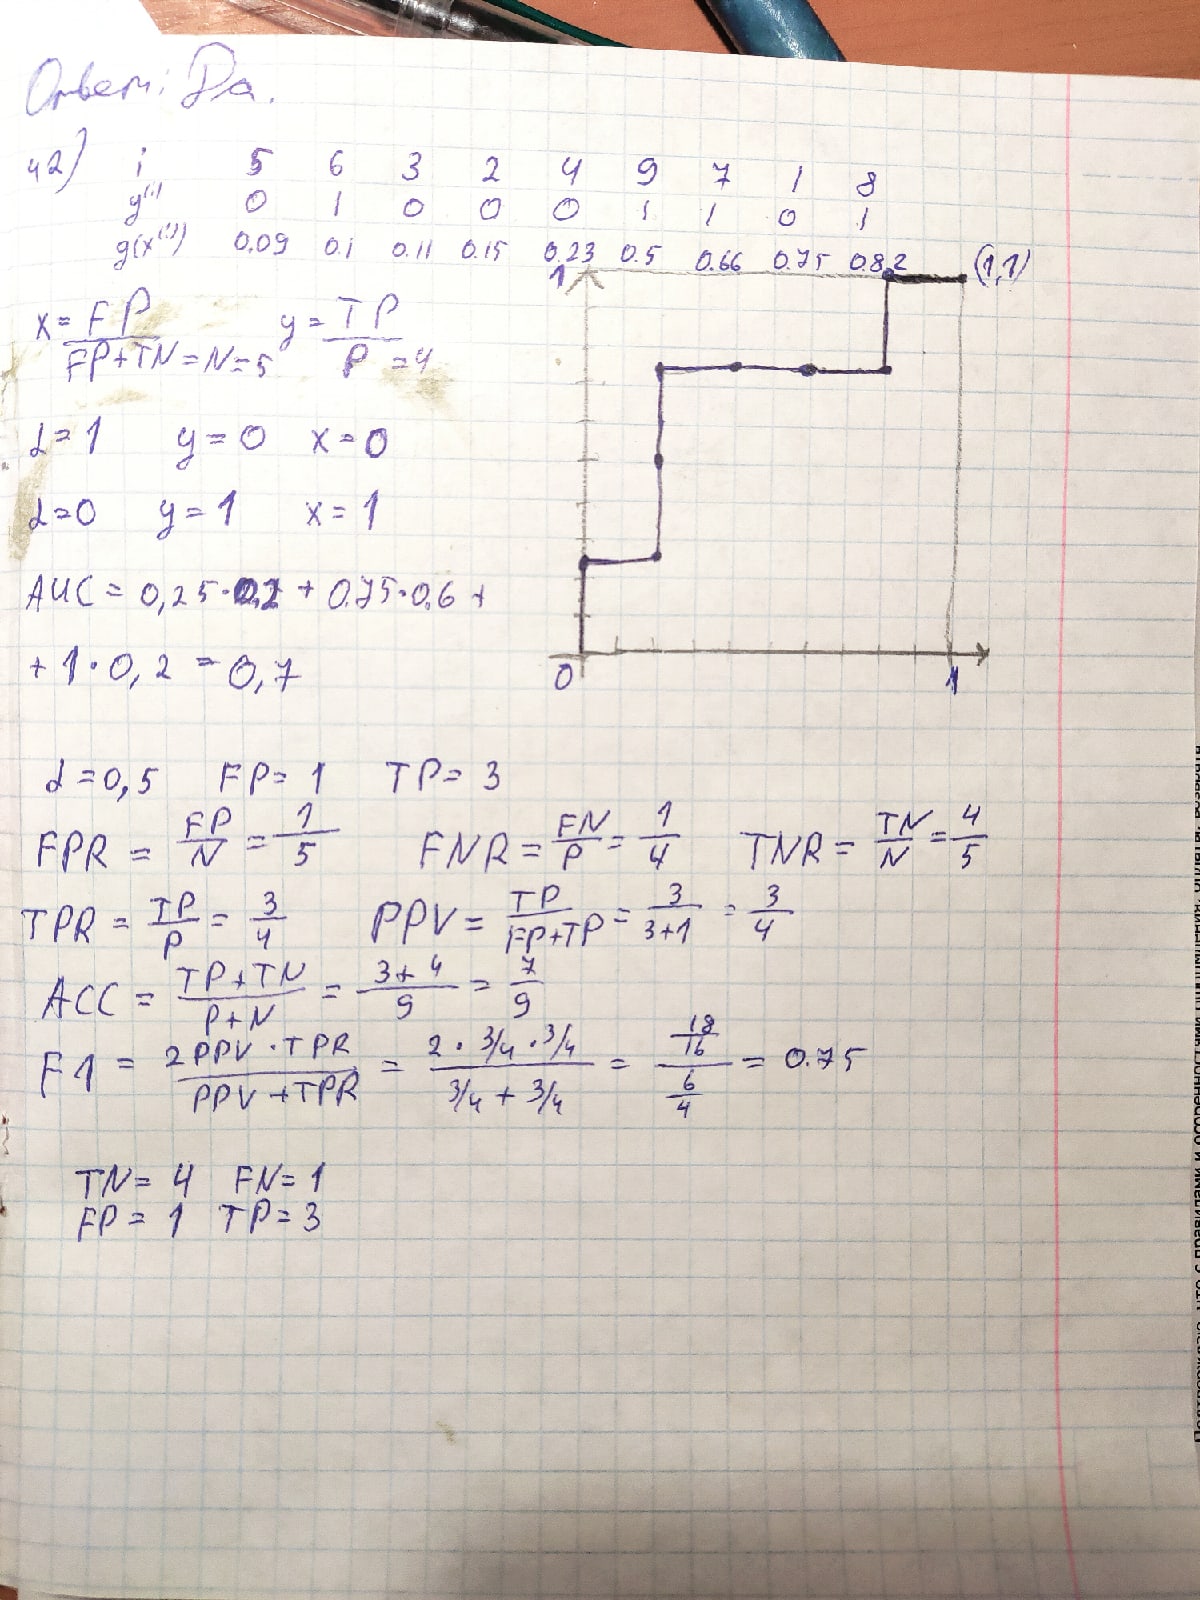 Ответ: Да.
42) i 5 6 3 2 4 9 7 1 8
y⁽ⁱ⁾ 0 1 0 0 0 1 1 0 1
g(x⁽ⁱ⁾) 0.09 0.1 0.11 0.15 0.23 0.5 0.66 0.75 0.82
1 (1,1)
x = FP / FP+TN = N = 5 y = TP / P = 4
α = 1 y = 0 x = 0
α = 0 y = 1 x = 1
AUC = 0,25 · 0,2 + 0.75 · 0.6 +
+ 1 · 0,2 = 0,7
0 1
α = 0,5 FP = 1 TP = 3
FPR = FP/N = 1/5 FNR = FN/P = 1/4 TNR = TN/N = 4/5
TPR = TP/P = 3/4 PPV = TP/FP+TP = 3/3+1 = 3/4
ACC = TP+TN / P+N = 3+4 / 9 = 7/9
F1 = 2PPV · TPR / PPV + TPR = 2 · 3/4 · 3/4 / 3/4 + 3/4 = 18/16 / 6/4 = 0.75
TN = 4 FN = 1
FP = 1 TP = 3